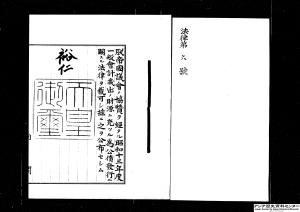 法律第 號
朕帝國議會ノ協贊ヲ經タル昭和十三年度
一般會計歳出ノ財源ニ充ツル爲公債發行ニ
關スル法律ヲ裁可シ茲ニ之ヲ公布セシム
裕仁
天皇
御璽
アジア歴史資料センター